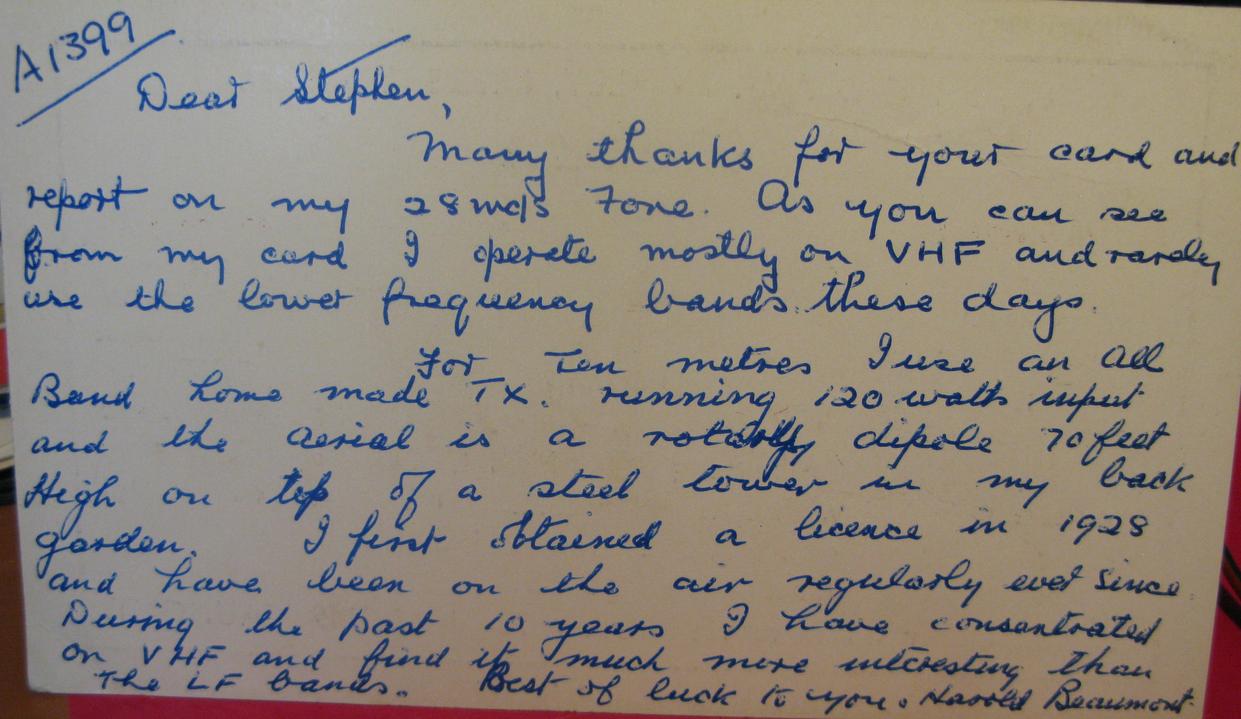 A1399
Dear Stephen,
Many thanks for your card and
report on my 28 mc/s Fone. As you can see
from my card I operate mostly on VHF and rarely
use the lower frequency bands these days.
For Ten metres I use an All
Band home made TX. running 120 watts input
and the aerial is a rotary dipole 70 feet
High on top of a steel tower in my back
garden. I first obtained a licence in 1928
and have been on the air regularly ever since.
During the past 10 years I have consentrated
on VHF and find it much more interesting than
the LF bands. Best of luck to you. Harold Beaumont.